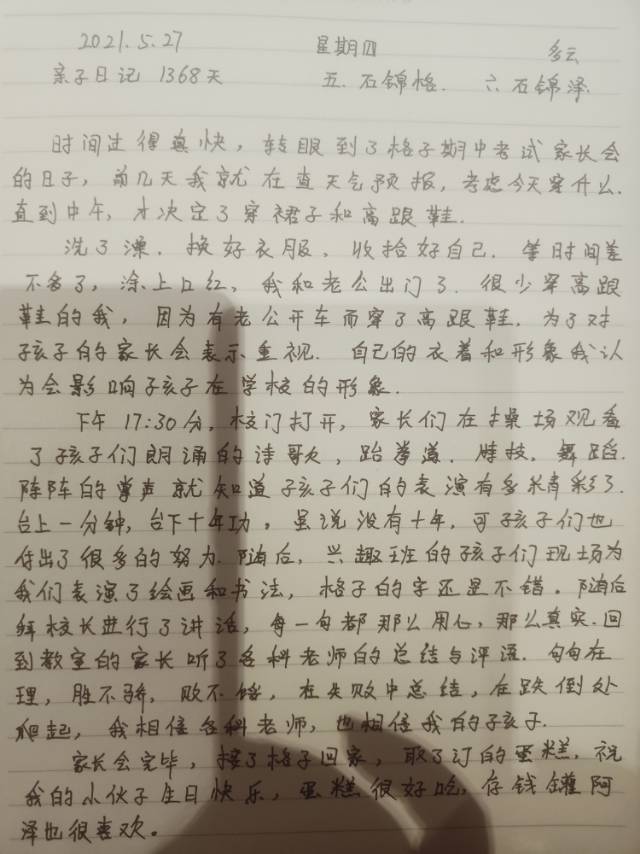 2021.5.27 星期四 多云
亲子日记 1368天 五.石锦格. 六石锦泽.
时间过得真快，转眼到了格子期中考试家长会
的日子，前几天我就在查天气预报，考虑今天穿什么.
直到中午，才决定了穿裙子和高跟鞋.
洗了澡.换好衣服、收拾好自己.等时间差
不多了，涂上口红，我和老公出门了.很少穿高跟
鞋的我，因为有老公开车而穿了高跟鞋.为了对
孩子的家长会表示重视.自己的衣着和形象我认
为会影响孩子在学校的形象.
下午17:30分，校门打开，家长们在操场观看
了孩子们朗诵的诗歌，跆拳道.竞技.舞蹈.
阵阵的掌声就知道孩子们的表演有多精彩了.
台上一分钟，台下十年功。虽说没有十年，可孩子们也
付出了很多的努力.随后，兴趣班的孩子们现场为
我们表演了绘画和书法，格子的字还是不错。随后
拜校长进行了讲话，每一句都那么用心，那么真实.回
到教室的家长听了各科老师的总结与评流.句句在
理，胜不骄，败不馁，在失败中总结，在跌倒处
爬起，我相信各科老师，也相信我的孩子.
家长会完毕，接了格子回家，取了订的蛋糕，祝
我的小伙子生日快乐，蛋糕很好吃，存钱罐阿
泽也很喜欢。